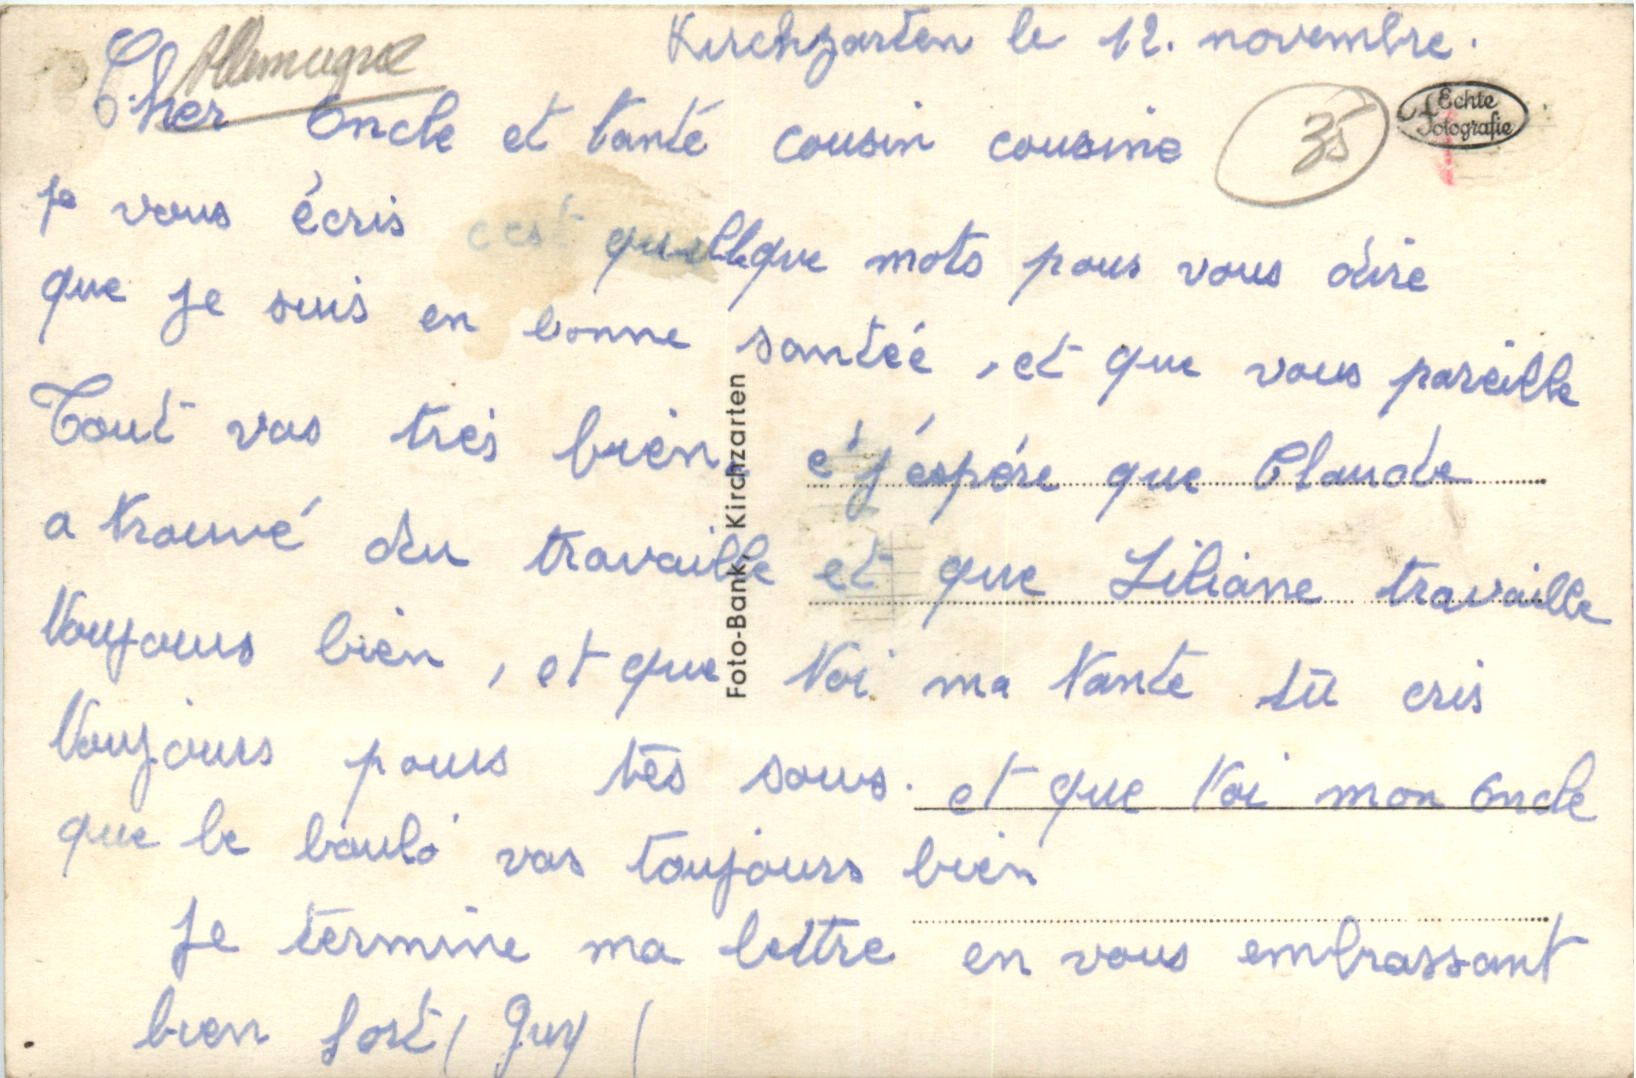 Kirchzarten le 12. novembre.
Allemagne
Cher Oncle et tanté cousin cousine
35
Echte Fotografie
je vous écris c'est quellque mots pour vous dire
que je suis en bonne santéé, et que vous pareille
Tout vas trés bien, é j'éspére que Claude
a trouvé du travaille et que Liliane travaille
toujours bien, et que toi ma tante tu cris
toujours pour tes sous. et que toi mon oncle
que le bouló vas toujours bien
Je termine ma lettre en vous embrassant
bien fort ( Guy (
Foto-Bank, Kirchzarten